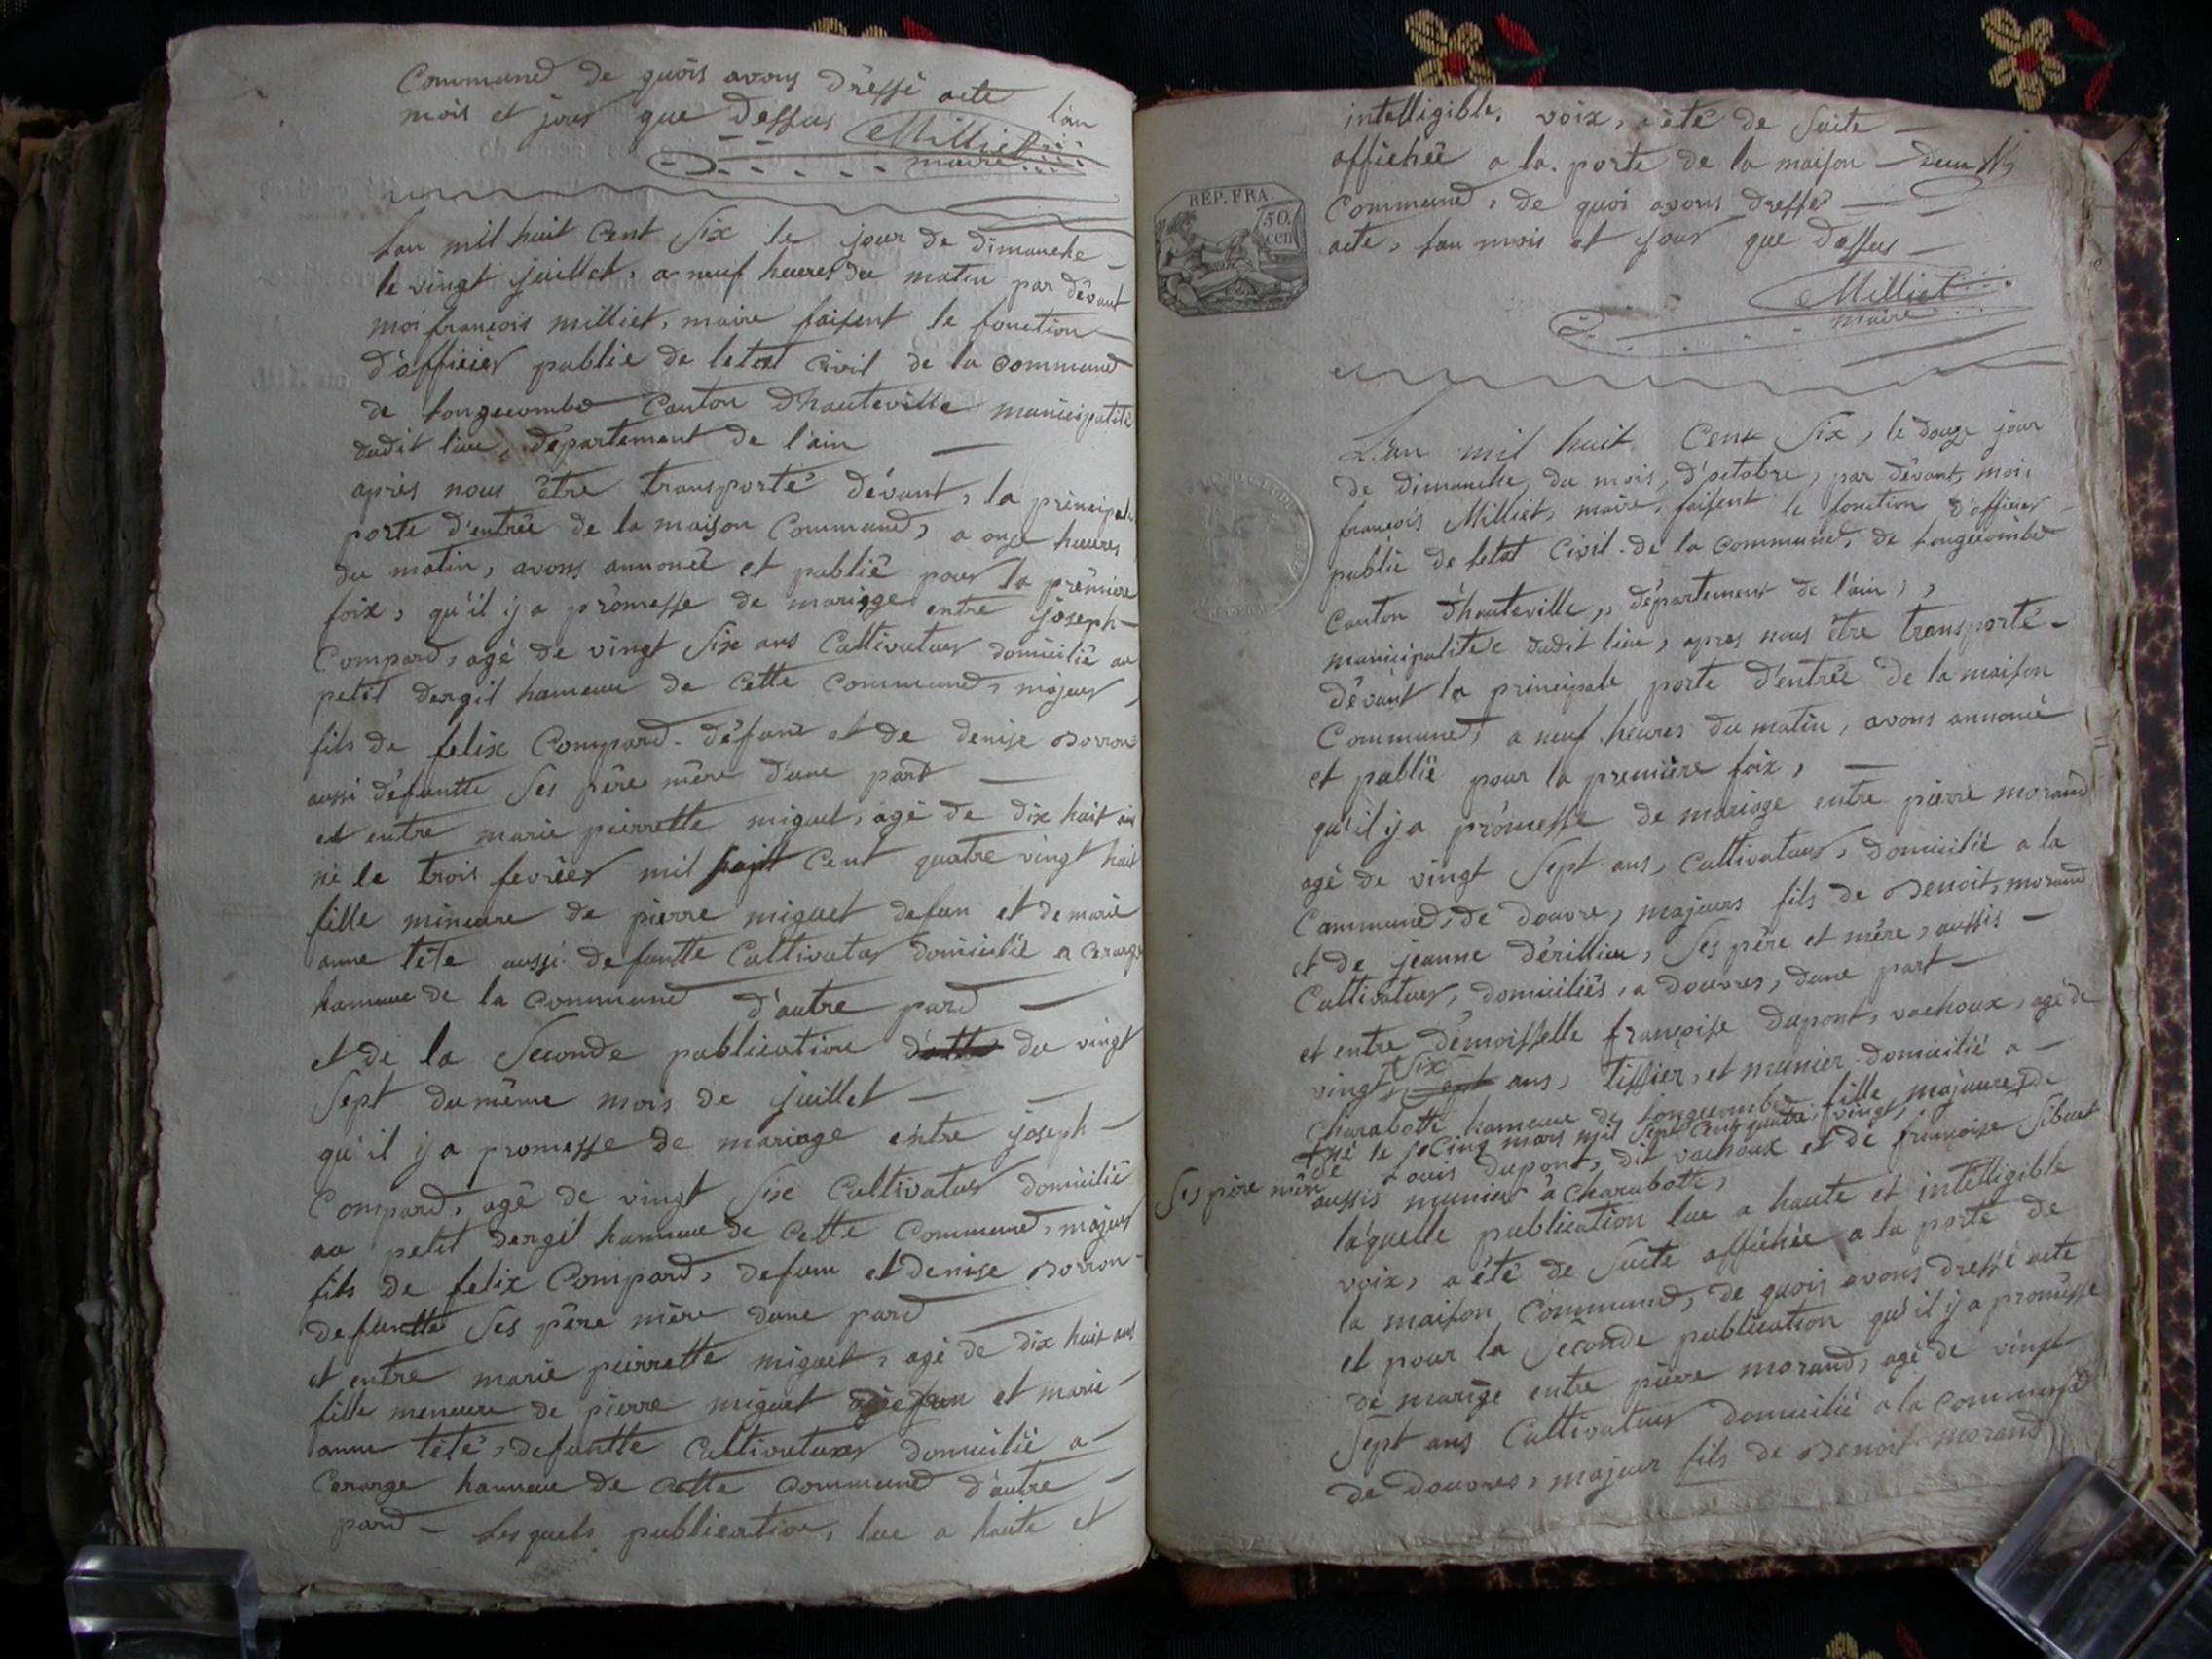 Commune de quois avons dréssé acte l'an
mois et jour que dessus Milliet
maire
L'an mil huit Cent Six le jour de dimanche
le vingt juillet, a neuf heures du matin par dévant
moi françois milliet, maire faisent le fonction
d'officier publie de letat Civil de la commune
de Longecombe Canton D'hauteville municipalité
dudit lieu, département de l'ain
après nous être transporté dévant, la principale
porte d'entrée de la maison Commune, a onze heures
du matin, avons annoncé et publié pour la prémiere
foix, qu'il y a promesse de mariage entre joseph
Compard, agé de vingt Six ans Cultivateur domicilié au
petit dergil hameau de Cette Commune, majeur,
fils de felix Compard défunt et de denise Borron
aussi défuntte Ses père mère d'une part
et entre marie pierrette miguet, agé de dix huit ans
né le trois fevrier mil sept Cent quatre vingt huit
fille mineure de pierre miguet defun et de marie
anne tête aussi defuntte Cultivateur domicilié a Cerarge
hameau de la Commune d'autre pard
et de la Seconde publication du vingt
Sept du même mois de juillet
qu'il y a promesse de mariage entre joseph
Compard, agé de vingt Six Cultivateur domicilié
au petit dergil hameau de Cette Commune, majeur
fils de felix Compard, defun et denise Borron
defuntte Ses père mère dune pard
et entre marie pierrette miguet, agé de dix huit ans
fille meneure de pierre miguet et marie
anne tête, defuntte Cultivateur domicilié a
Cerarge hameau de Cette Commune d'autre
pard Lesquels publication, lue a haute et
intelligible, voix, a été de Suite
affichée a la porte de la maison
Commune, de quoi avons dressé
acte, l'an mois et jour que dessus
RÉP. FRA.
50.
cen
Milliet
maire
L'an mil huit Cent Six, le douze jour
de dimanche, du mois, d'octobre, par dévant, moi,
françois Milliet, maire, faisent le fonction d'officier
publie de letat Civil de la Commune, de Longecombe
Canton d'hauteville, département de l'ain,
municipalité dudit lieu, apres nous être transporté
dévant la principale porte d'entrée de la maison
Commune, a neuf heures du matin, avons annoncé
et publié pour la première foix,
qu'il y a promesse de mariage entre pierre morand
agé de vingt Sept ans, Cultivateur, domicilié a la
Commune, de douvre, majeurs fils de Benoit, morand
et de jeanne dérillieu, Ses père et mère, aussis
Cultivateur, domiciliés, a douvres, dune part
et entre démoisselle françoise dupont, vachoux, agé de
vingt Six ans, tissier, et munier domicilié a
Charabotte hameau de Longecombe, fille majeure, de
né le Cinq mars mil Sept Cent quatre vingt
de Louis dupont, dit vachoux et de françoise Sibuet
Ses père mère aussis munier a Charabotte,
laquelle publication lue a haute et intelligible
voix, a été de Suite affichée a la porte de
la maison Commune, de quois avons dressé acte
et pour la Seconde publication qu'il y a promesse
de marige entre pierre morand, agé de vingt
Sept ans Cultivateur domicilié a la commune
de douvres, majeur fils de Benoit morand